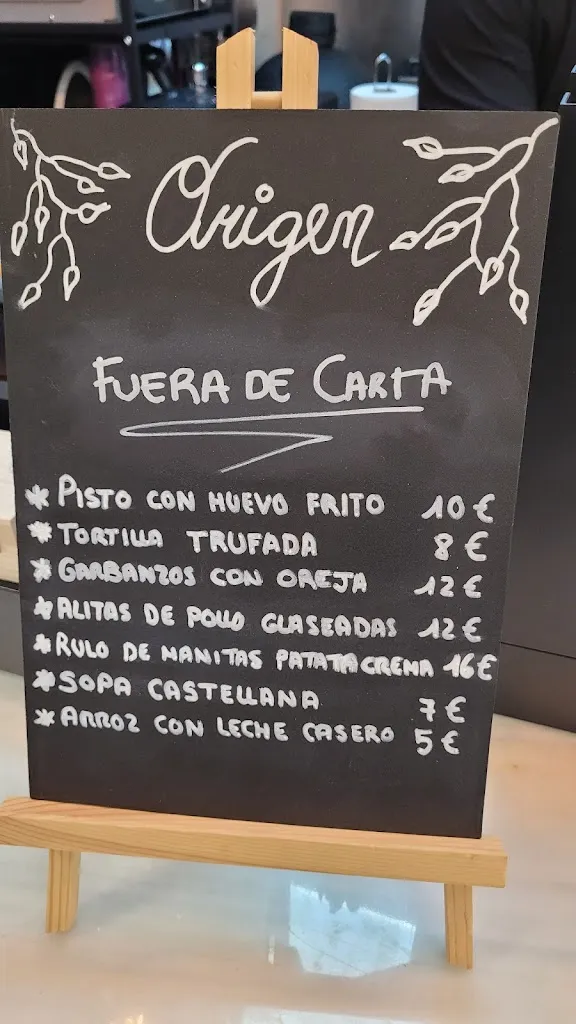 Origen
FUERA DE CARTA
* PISTO CON HUEVO FRITO 10€
* TORTILLA TRUFADA 8€
* GARBANZOS CON OREJA 12€
* ALITAS DE POLLO GLASEADAS 12€
* RULO DE MANITAS PATATA CREMA 16€
* SOPA CASTELLANA 7€
* ARROZ CON LECHE CASERO 5€